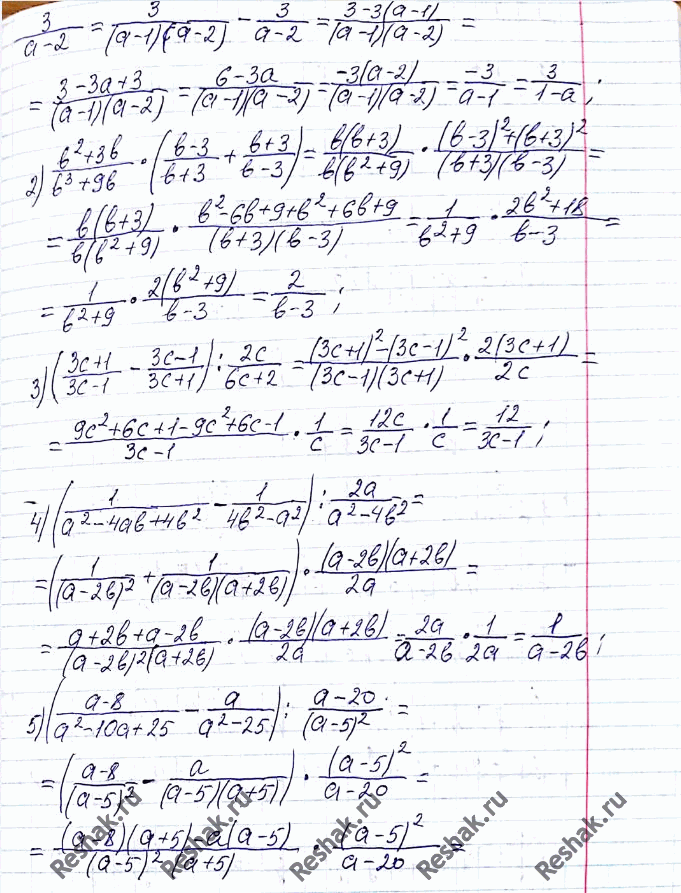 3/(a-2) = 3/((a-1)(a-2)) - 3/(a-2) = (3-3(a-1))/((a-1)(a-2)) =
= (3-3a+3)/((a-1)(a-2)) = (6-3a)/((a-1)(a-2)) = (-3(a-2))/((a-1)(a-2)) = (-3)/(a-1) = 3/(1-a);
2) (в²+3в)/(в³+9в) · ((в-3)/(в+3) + (в+3)/(в-3)) = (в(в+3))/(в(в²+9)) · ((в-3)²+(в+3)²)/((в+3)(в-3)) =
= (в(в+3))/(в(в²+9)) · (в²-6в+9+в²+6в+9)/((в+3)(в-3)) = 1/(в²+9) · (2в²+18)/(в-3) =
= 1/(в²+9) · (2(в²+9))/(в-3) = 2/(в-3);
3) ((3c+1)/(3c-1) - (3c-1)/(3c+1)) : 2c/(6c+2) = ((3c+1)²-(3c-1)²)/((3c-1)(3c+1)) · (2(3c+1))/(2c) =
= (9c²+6c+1-9c²+6c-1)/(3c-1) · 1/c = 12c/(3c-1) · 1/c = 12/(3c-1);
4) (1/(a²-4aв+4в²) - 1/(4в²-a²)) : 2a/(a²-4в²) =
= (1/(a-2в)² + 1/((a-2в)(a+2в))) · ((a-2в)(a+2в))/(2a) =
= (a+2в+a-2в)/((a-2в)²(a+2в)) · ((a-2в)(a+2в))/(2a) = 2a/(a-2в) · 1/(2a) = 1/(a-2в);
5) ((a-8)/(a²-10a+25) - a/(a²-25)) : (a-20)/(a-5)² =
= ((a-8)/(a-5)² - a/((a-5)(a+5))) · (a-5)²/(a-20) =
= ((a-8)(a+5)-a(a-5))/((a-5)²(a+5)) · (a-5)²/(a-20) =
Reshak.ru
Reshak.ru
Reshak.ru
Reshak.ru